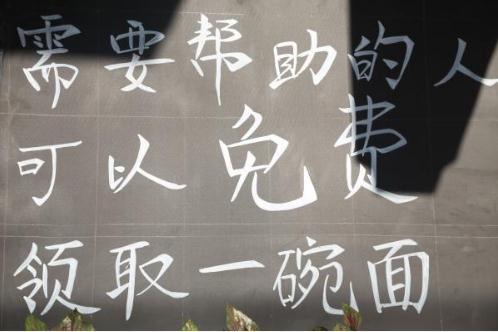 需要帮助的人
可以免费
领取一碗面